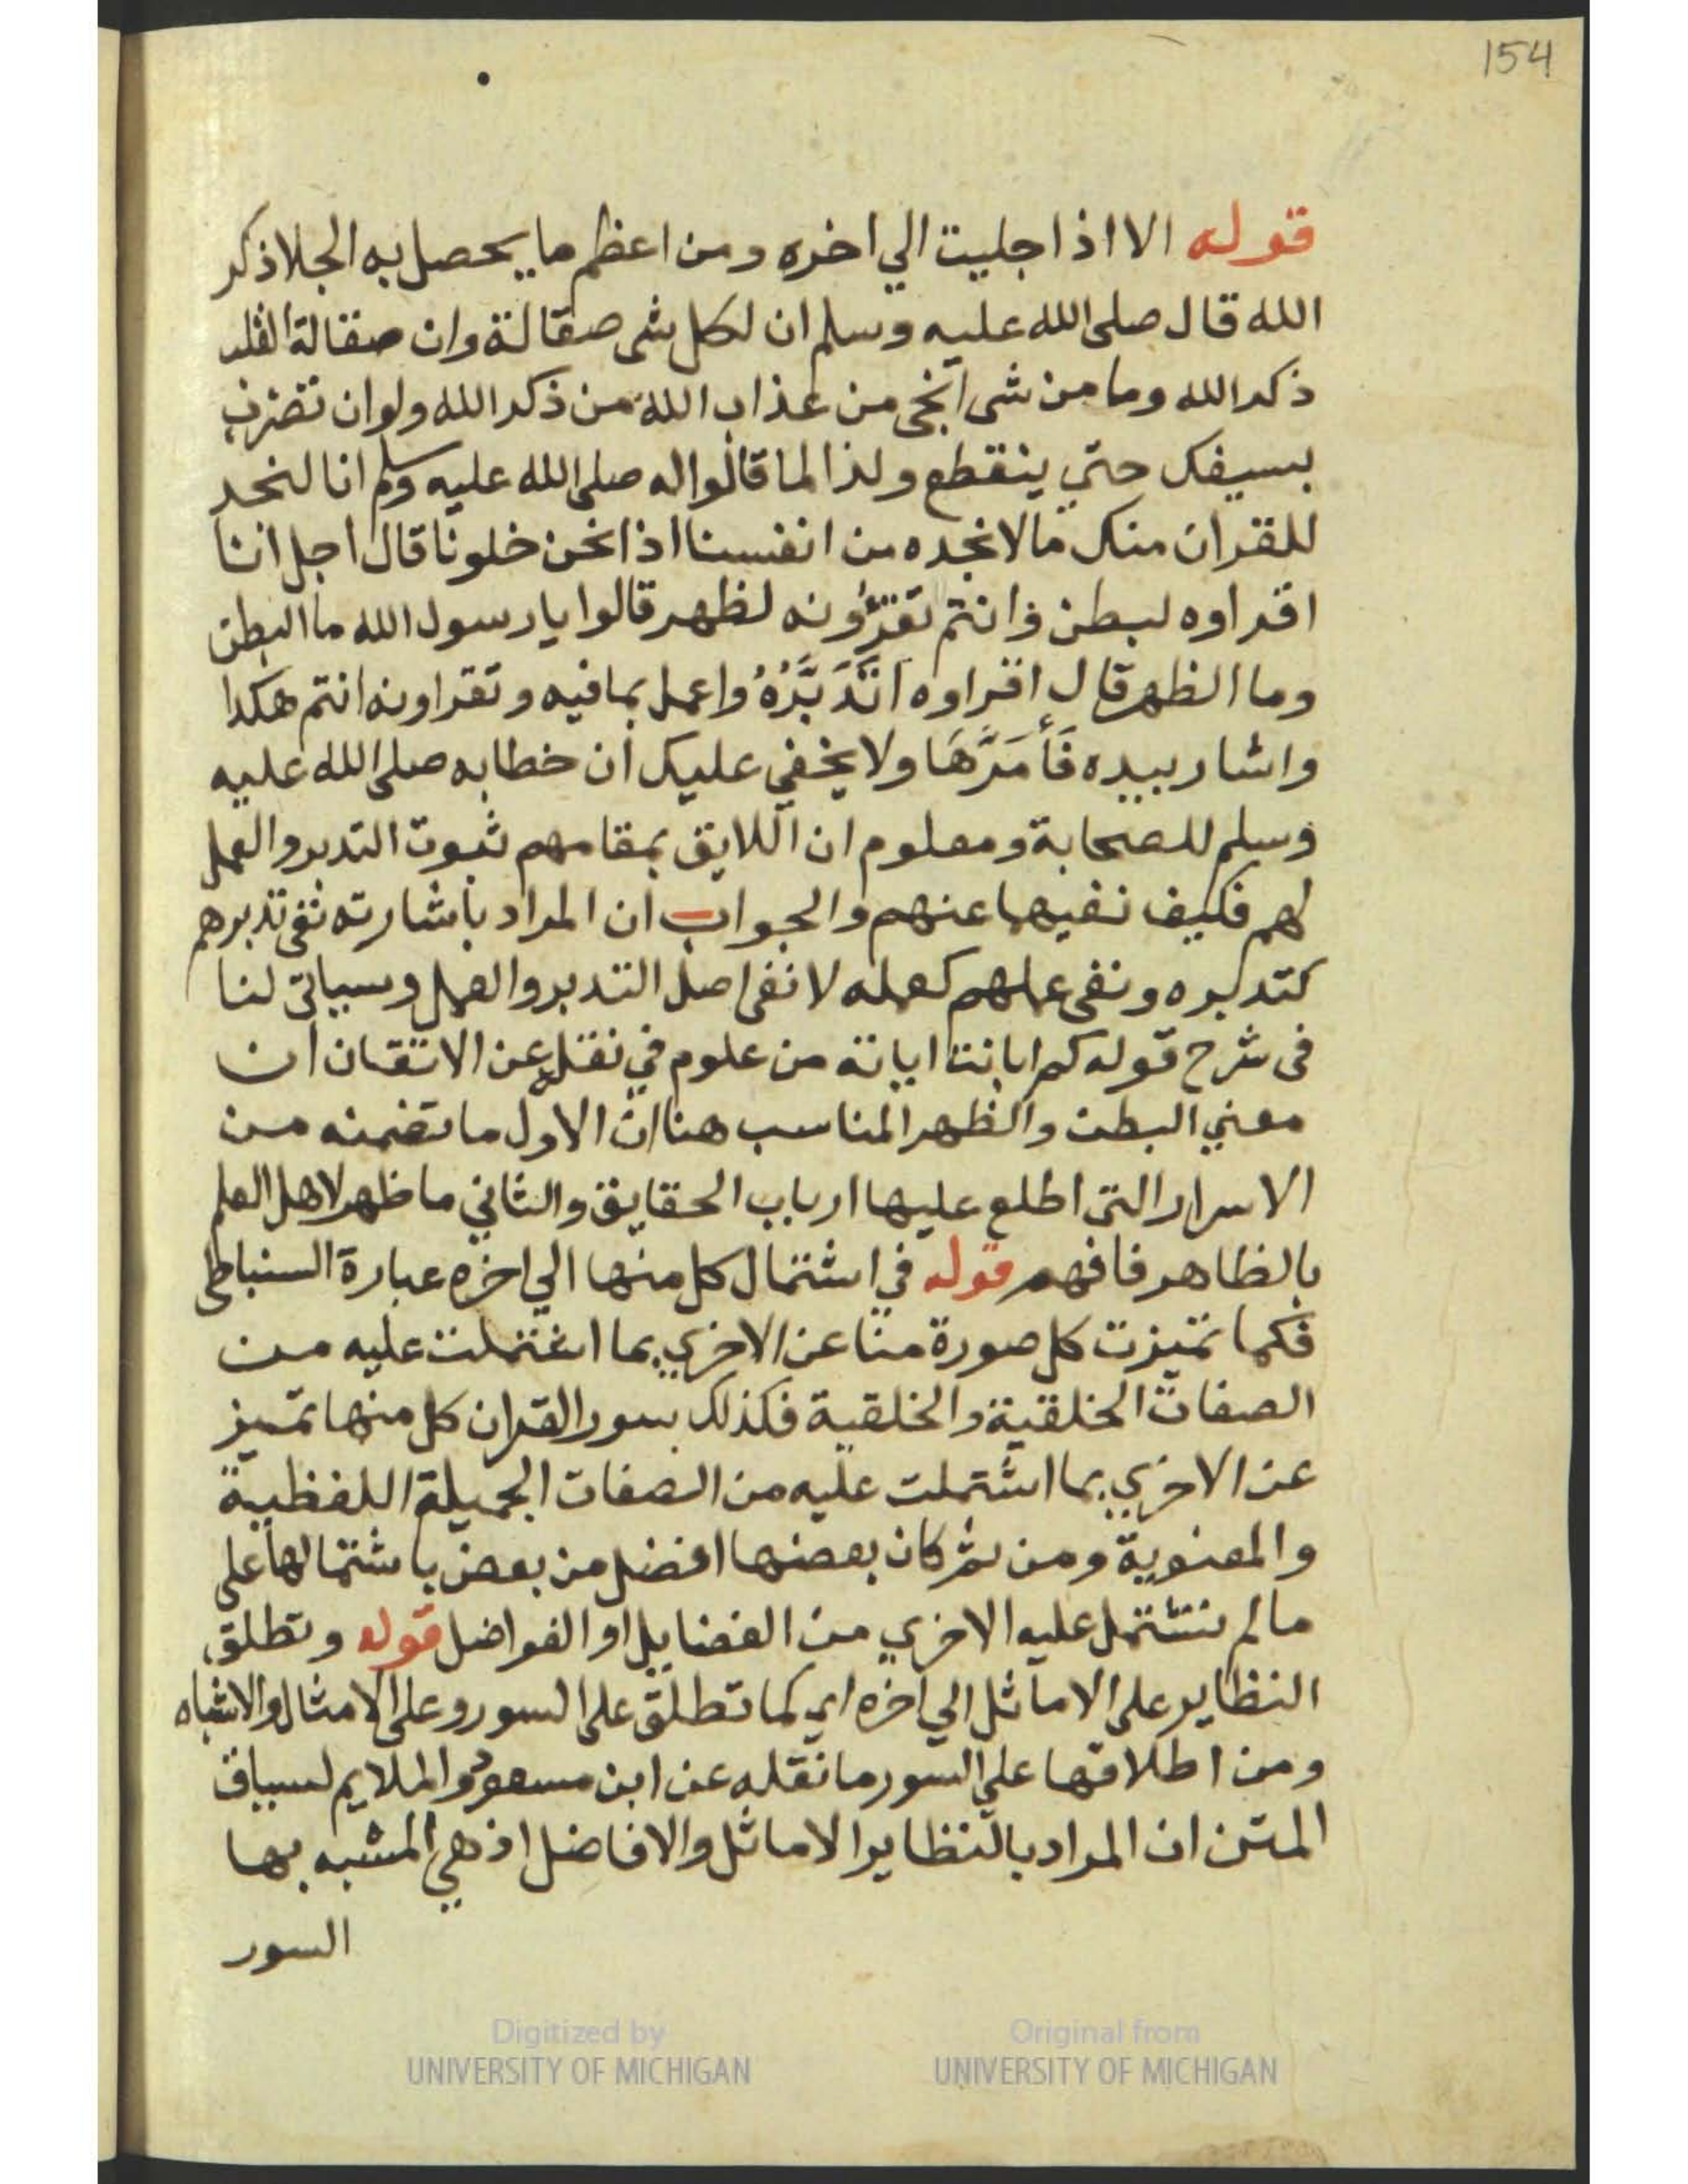 154
قوله الا اذا جليت الي اخره ومن اعظم ما يحصل به الجلا ذكر
الله قال صلى الله عليه وسلم ان لكل شى صقالة وان صقالة القلب
ذكر الله وما من شى انجى من عذاب الله من ذكر الله ولو ان تضرب
بسيفك حتي ينقطع ولذا لما قالوا له صلى الله عليه وسلم انا لنجد
للقران منك ما لا نجده من انفسنا اذا نحن خلونا قال اجل انا
اقراوه لبطن وانتم تقرؤونه لظهر قالوا يا رسول الله ما البطن
وما الظهر قال اقراوه اتَدَبَّرُهُ واعمل بما فيه وتقراونه انتم هكذا
واشار بيده فَأَمَرَّهَا ولا يخفي عليك ان خطابه صلى الله عليه
وسلم للصحابة ومعلوم ان اللايق بمقامهم ثبوت التدبر والعمل
لهم فكيف نفيها عنهم والجواب ان المراد باشارته نفى تدبرهم
كتدبره ونفى عملهم كعمله لا نفى اصل التدبر والعمل وسياتى لنا
فى شرح قوله كم ابانت اياته من علوم في نقل عن الاتقان ان
معني البطن والظهر المناسب هنا ان الاول ما تضمنه من
الاسرار التى اطلع عليها ارباب الحقايق والثاني ما ظهر لاهل العلم
بالظاهر فافهم قوله في اشتمال كل منها الي اخره عبارة السنباطى
فكما تميزت كل صورة منا عن الاخري بما اشتملت عليه من
الصفات الخلقية والخلقية فكذلك سور القران كل منها تميز
عن الاخري بما اشتملت عليه من الصفات الجميلة اللفظية
والمعنوية ومن ثم كان بعضها افضل من بعض باشتمالها على
ما لم تشتمل عليه الاخري من الفضايل او الفواضل قوله وتطلق
النظاير على الاماثل الي اخره اي كما تطلق على السور وعلى الامثال والاشباه
ومن اطلاقها علي السور ما نقله عن ابن مسعود والملايم لسياق
المتن ان المراد بالنظاير الاماثل والافاضل اذ هي المشبه بها
السور
Digitized by
UNIVERSITY OF MICHIGAN
Original from
UNIVERSITY OF MICHIGAN